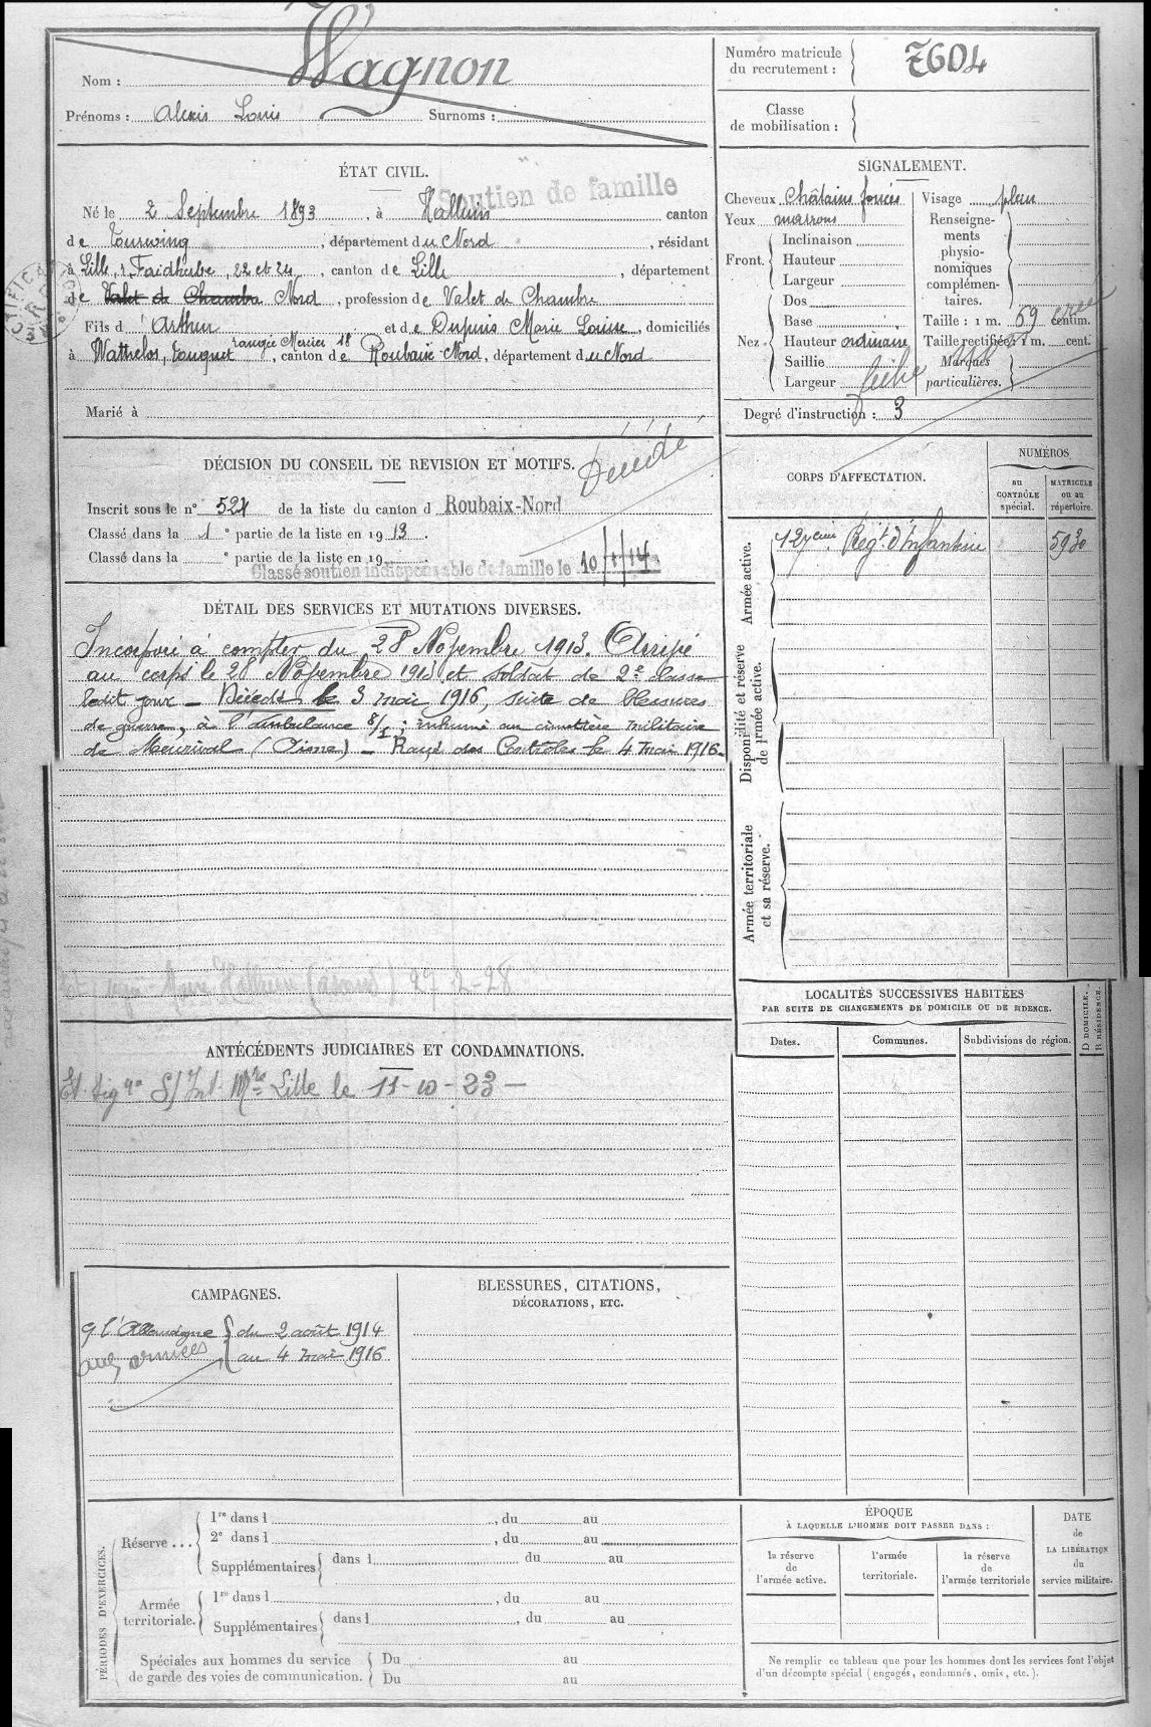 Nom : Wagnon
Prénoms : Alexis Louis Surnoms :
Numéro matricule du recrutement : 7604
Classe de mobilisation :
ÉTAT CIVIL.
Soutien de famille
Né le 2 Septembre 1893, à Halluin canton
de Tourcoing, département du Nord, résidant
à Lille, r. Faidherbe, 22 et 24, canton de Lille, département
de Valet de Chambre Nord, profession de Valet de Chambre
Fils d'Arthur et de Dupuis Marie Louise, domiciliés
à Wattrelos, Touquet rangée Mercier 18, canton de Roubaix-Nord, département du Nord
Marié à
SIGNALEMENT.
Cheveux châtains foncés
Yeux marrons
Front. Inclinaison
Hauteur
Largeur
Nez. Dos
Base
Hauteur ordinaire
Saillie
Largeur
Visage plein
Renseignements physionomiques complémentaires.
Taille : 1 m. 59 centim.
Taille rectifiée : 1 m. cent.
Marques particulières.
Degré d'instruction : 3
DÉCISION DU CONSEIL DE REVISION ET MOTIFS.
Décédé
Inscrit sous le n° 527 de la liste du canton d Roubaix-Nord
Classé dans la 1e partie de la liste en 1913.
Classé dans la e partie de la liste en 19
Classé soutien indispensable de famille le 10/1/14
CORPS D'AFFECTATION.
NUMÉROS
au CONTRÔLE spécial.
MATRICULE ou au répertoire.
Armée active.
127ème Régt d'Infanterie 5930
Disponibilité et réserve de l'armée active.
Armée territoriale et sa réserve.
DÉTAIL DES SERVICES ET MUTATIONS DIVERSES.
Incorporé à compter du 28 Novembre 1913. Arrivé
au corps le 28 Novembre 1913 et soldat de 2e classe
ledit jour – Décédé le 3 mai 1916, suite de blessures
de guerre, à l'ambulance 8/1; inhumé au cimetière militaire
de Meurival (Aisne) – Rayé des Contrôles le 4 mai 1916.
Maire Halluin 27-2-28
LOCALITÉS SUCCESSIVES HABITÉES
PAR SUITE DE CHANGEMENTS DE DOMICILE OU DE RÉSIDENCE.
Dates.
Communes.
Subdivisions de région.
D DOMICILE.
R RÉSIDENCE.
ANTÉCÉDENTS JUDICIAIRES ET CONDAMNATIONS.
S/Int. Mre Lille le 11-10-23 –
CAMPAGNES.
C. l'Allemagne { du 2 août 1914
aux armées { au 4 mai 1916
BLESSURES, CITATIONS,
DÉCORATIONS, ETC.
PÉRIODES D'EXERCICES.
Réserve ...
1re dans l , du au
2e dans l , du au
Supplémentaires dans l du au
Armée territoriale.
1re dans l , du au
Supplémentaires dans l , du au
Spéciales aux hommes du service
de garde des voies de communication.
Du au
Du au
ÉPOQUE
À LAQUELLE L'HOMME DOIT PASSER DANS :
la réserve de l'armée active.
l'armée territoriale.
la réserve de l'armée territoriale
DATE de LA LIBÉRATION du service militaire.
Ne remplir ce tableau que pour les hommes dont les services font l'objet
d'un décompte spécial (engagés, condamnés, omis, etc.).